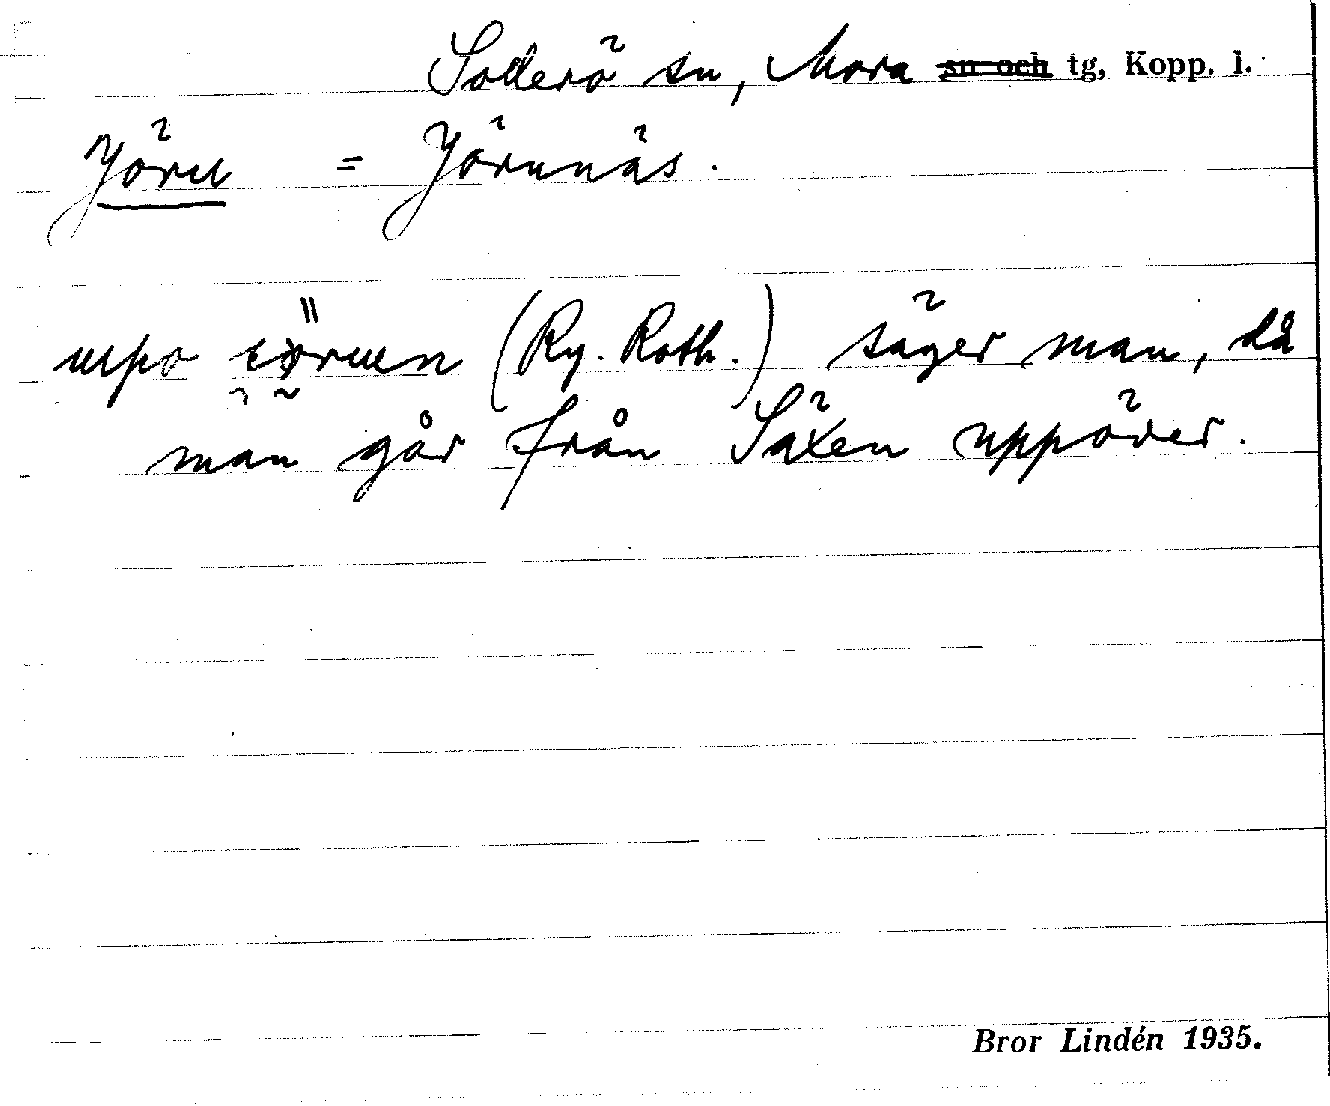 Sollerö sn, Mora ~~sn och~~ tg, Kopp. l.
Jörn = Jörnnäs.
(Ry. Roth.) säger man, då
man går från Säxen uppöver.
Bror Lindén 1935.